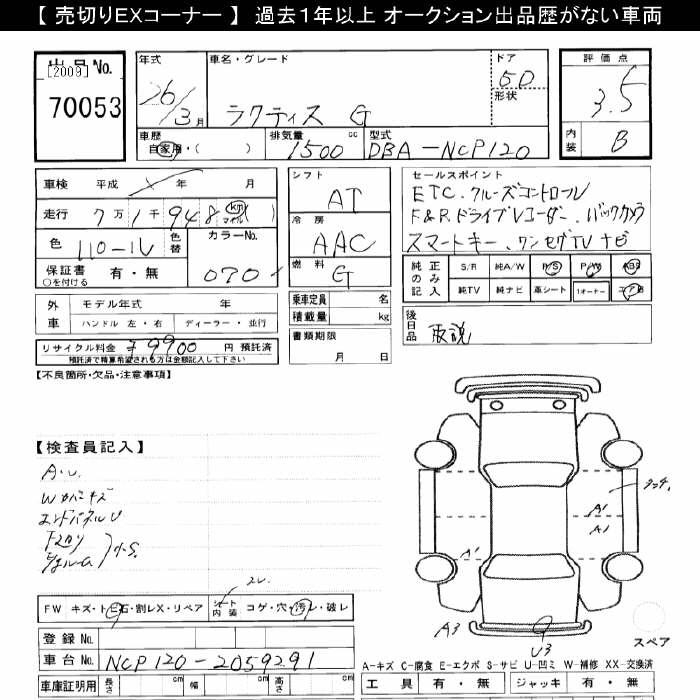 【 売切りEXコーナー 】 過去1年以上 オークション出品歴がない車両
出品No.
[2009]
70053
年式
26/3月
車名・グレード
ラクティス G
ドア
5D
形状
評価点
3.5
内装
B
車歴
自家用・( )
排気量
1500 cc
型式
DBA-NCP120
車検 平成 年 月
走行 7万1千948 km マイル ( )
色
パール
色替
カラーNo.
070
保証書 有・無
○を付ける
シフト
AT
冷房
AAC
燃料
G
乗車定員 名
積載量 kg
書類期限
月 日
セールスポイント
ETC. クルーズコントロール
F&R.ドライブレコーダー. バックカメラ
スマートキー、ワンセグTVナビ
純正のみ記入
S/R 純A/W P/S P/W ABS
純TV 純ナビ 革シート 1オーナー エアB
外車
モデル年式 年
ハンドル 左・右 ディーラー・並行
リサイクル料金 ¥9900 円 預託済
預託済で精算希望される方は金額記入して下さい
後日品
取説
【不良箇所・欠品・注意事項】
【検査員記入】
A・U.
Wカバキズ
エンドパネルU
FW キズ・トビ石・割レX・リペア
シート内装 コゲ・穴・汚レ・破レ
登録No.
車台No. NCP120-2059291
車庫証明用 長さ cm 幅 cm 高さ cm
A1
A1
A1
A3
U3
スペア
A-キズ C-腐食 E-エクボ S-サビ U-凹ミ W-補修 XX-交換済
工具 有・無 ジャッキ 有・無